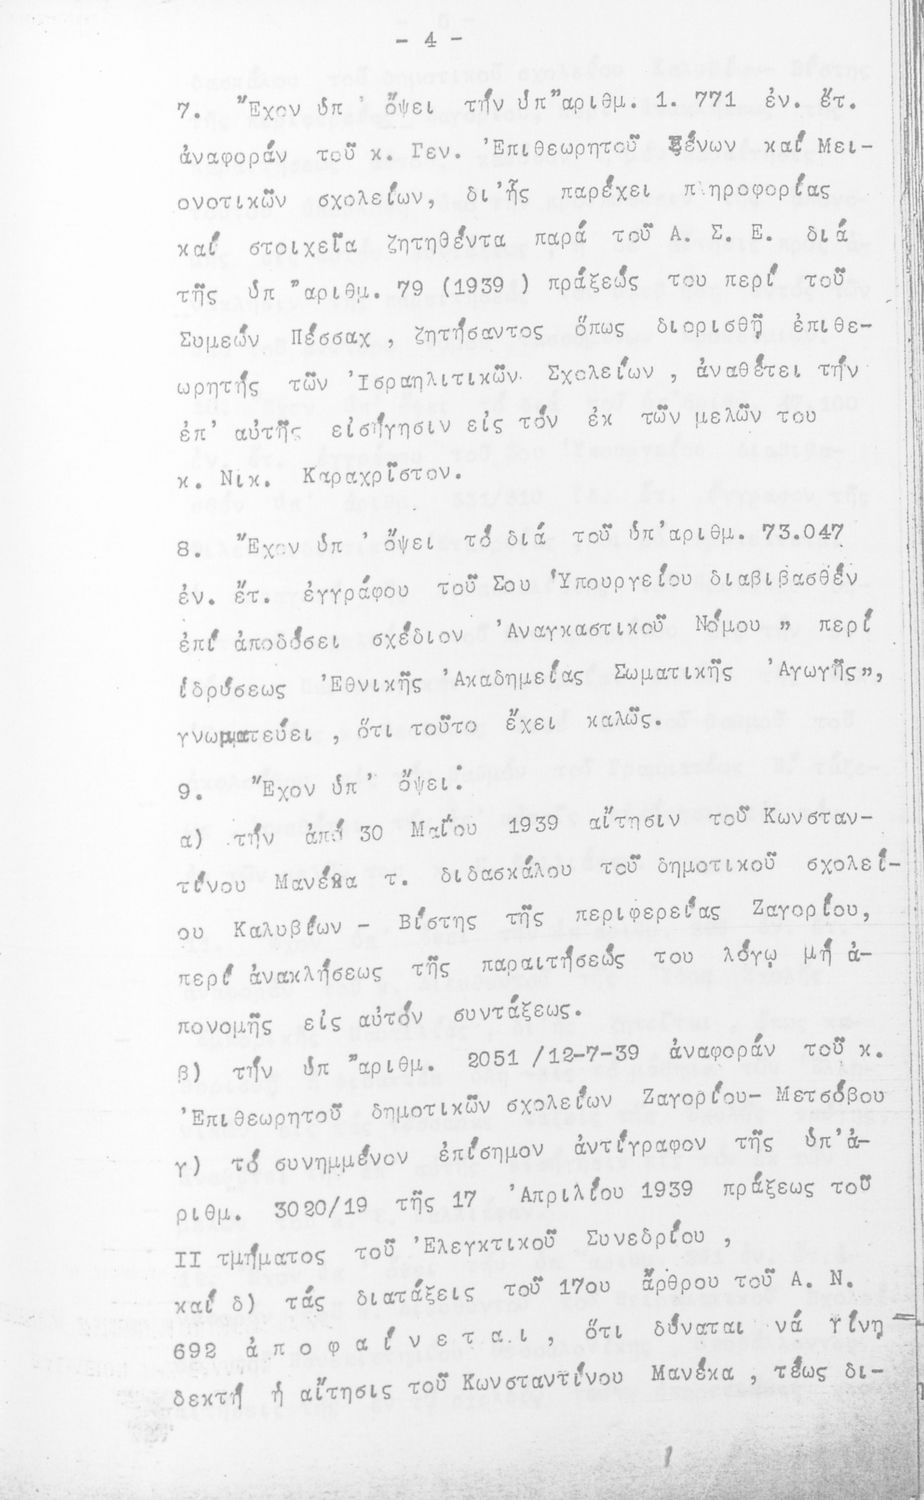 - 4 -
7. Ἔχον ὑπ' ὄψει τήν ὑπ"ἀριθμ. 1. 771 ἐν. ἔτ.
ἀναφοράν τοῦ κ. Γεν. Ἐπιθεωρητοῦ Ξένων καί Μει-
ονοτικῶν σχολείων, δι'ἧς παρέχει πληροφορίας
καί στοιχεῖα ζητηθέντα παρά τοῦ Α. Σ. Ε. διά
τῆς ὑπ "αριθμ. 79 (1939 ) πράξεώς του περί τοῦ
Συμεών Πέσσαχ , ζητήσαντος ὅπως διορισθῇ ἐπιθε-
ωρητής τῶν Ἰσραηλιτικῶν Σχολείων , ἀναθέτει τήν
ἐπ' αὐτῆς εἰσήγησιν εἰς τόν ἐκ τῶν μελῶν του
κ. Νικ. Καραχρῖστον.
8. Ἔχον ὑπ ' ὄψει τό διά τοῦ ὑπ'αριθμ. 73.047
ἐν. ἔτ. ἐγγράφου τοῦ Σου Ὑπουργείου διαβιβασθέν
ἐπί ἀποδόσει σχέδιον Ἀναγκαστικοῦ Νόμου " περί
ἱδρύσεως Ἐθνικῆς Ἀκαδημείας Σωματικῆς Ἀγωγῆς",
γνωματεύει , ὅτι τοῦτο ἔχει καλῶς.
9. Ἔχον ὑπ' ὄψει:
α) τήν ἀπό 30 Μαΐου 1939 αἴτησιν τοῦ Κωνσταν-
τίνου Μανέκα τ. διδασκάλου τοῦ δημοτικοῦ σχολεί-
ου Καλυβίων - Βίστης τῆς περιφερείας Ζαγορίου,
περί ἀνακλήσεως τῆς παραιτήσεώς του λόγῳ μή ἀ-
πονομῆς εἰς αὐτόν συντάξεως.
β) τήν ὑπ "αριθμ. 2051 /12-7-39 ἀναφοράν τοῦ κ.
Ἐπιθεωρητοῦ δημοτικῶν σχολείων Ζαγορίου- Μετσόβου
γ) τό συνημμένον ἐπίσημον ἀντίγραφον τῆς ὑπ'ἀ-
ριθμ. 3020/19 τῆς 17 Ἀπριλίου 1939 πράξεως τοῦ
ΙΙ τμήματος τοῦ Ἐλεγκτικοῦ Συνεδρίου ,
καί δ) τάς διατάξεις τοῦ 17ου ἄρθρου τοῦ Α. Ν.
692 ἀ π ο φ α ί ν ε τ α ι , ὅτι δύναται νά γίνῃ
δεκτή ἡ αἴτησις τοῦ Κωνσταντίνου Μανέκα , τέως δι-